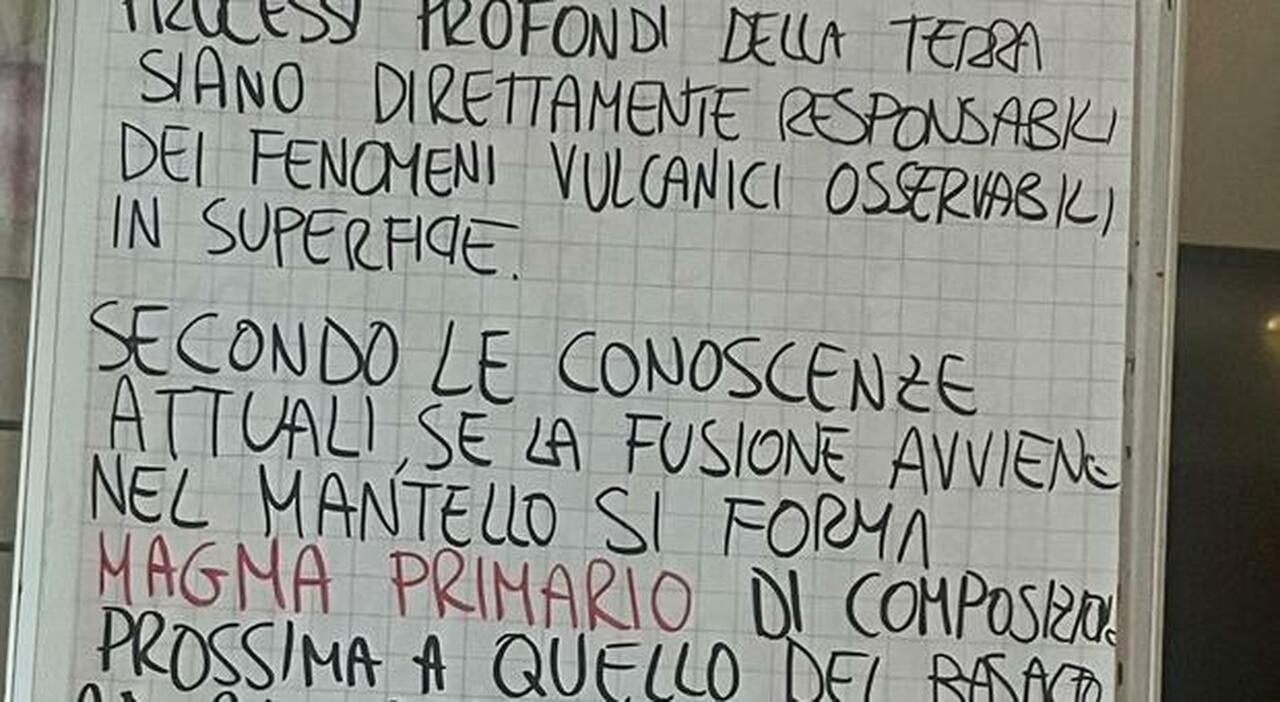 PROCESSI PROFONDI DELLA TERRA
SIANO DIRETTAMENTE RESPONSABILI
DEI FENOMENI VULCANICI OSSERVABILI
IN SUPERFICIE.
SECONDO LE CONOSCENZE
ATTUALI, SE LA FUSIONE AVVIENE
NEL MANTELLO SI FORMA
MAGMA PRIMARIO DI COMPOSIZIONE
PROSSIMA A QUELLO DEI